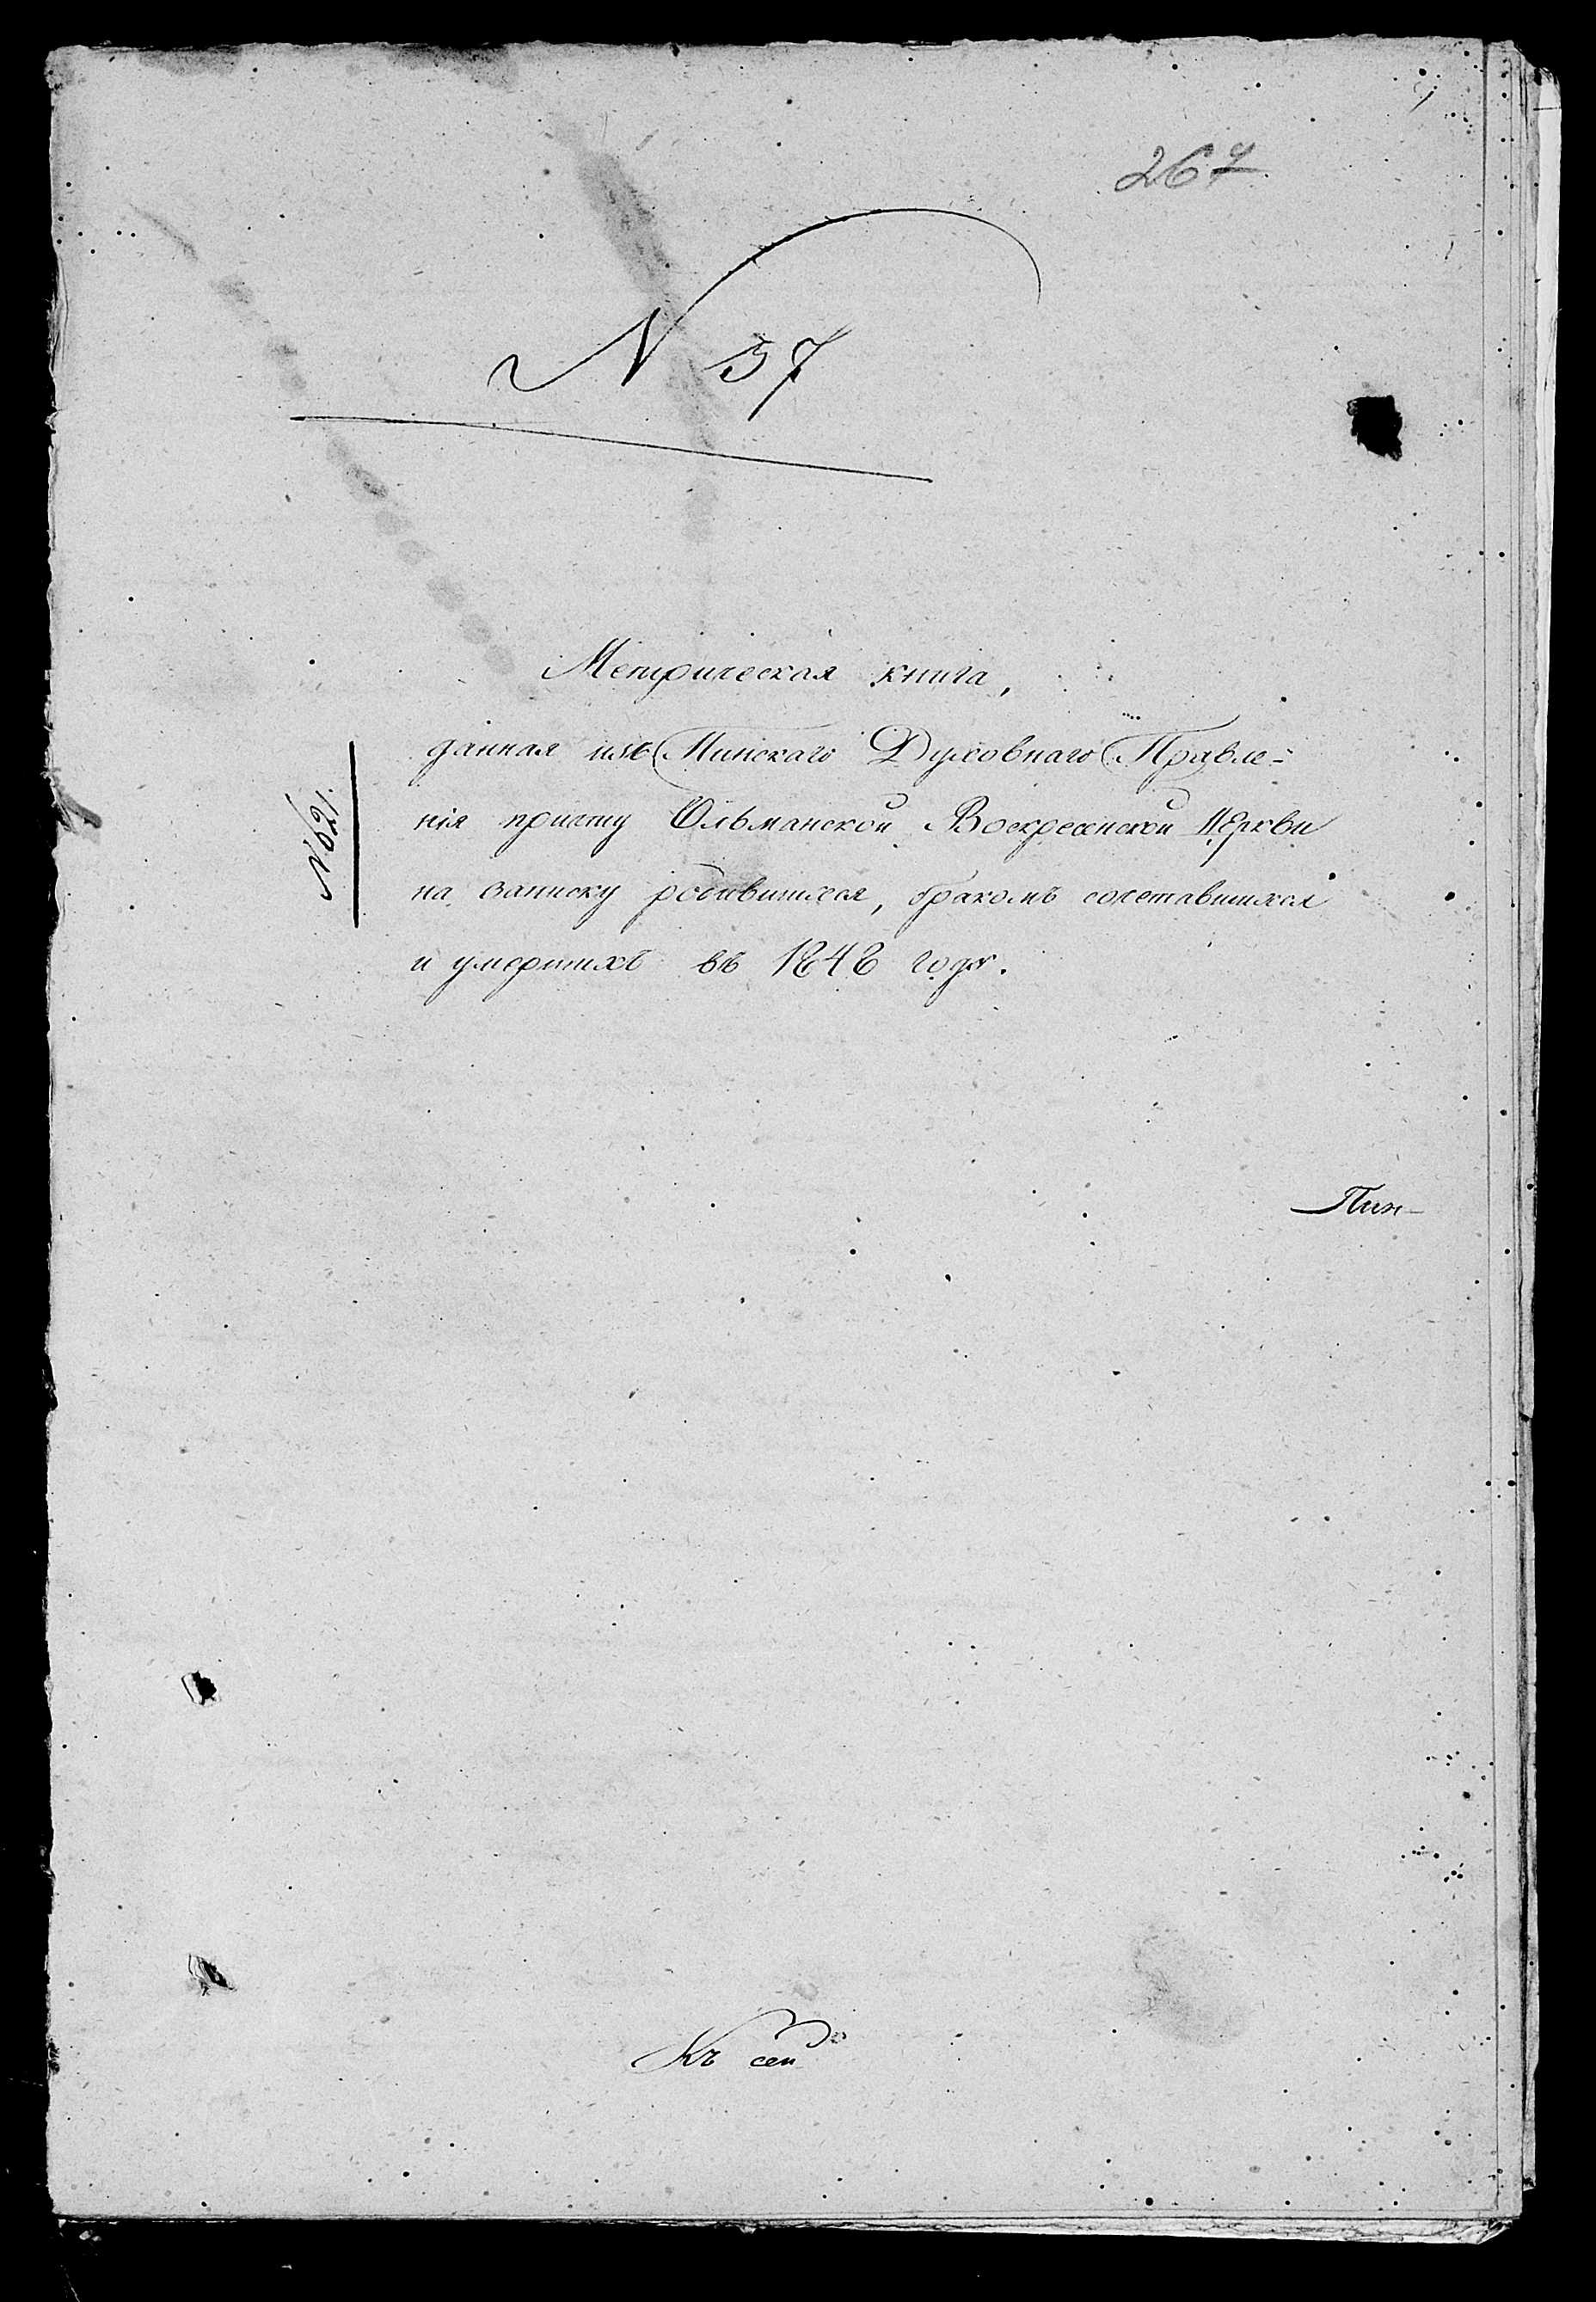 267
N 57
Метрическая книга,
данная изъ Пинскаго Духовнаго Правле-
нія причту Ольманской Воскресенской Церкви
на записку родившихся, бракомъ сочетавшихся
и умершихъ въ 1848 годѣ.
N 621.
Пин-
Къ сей